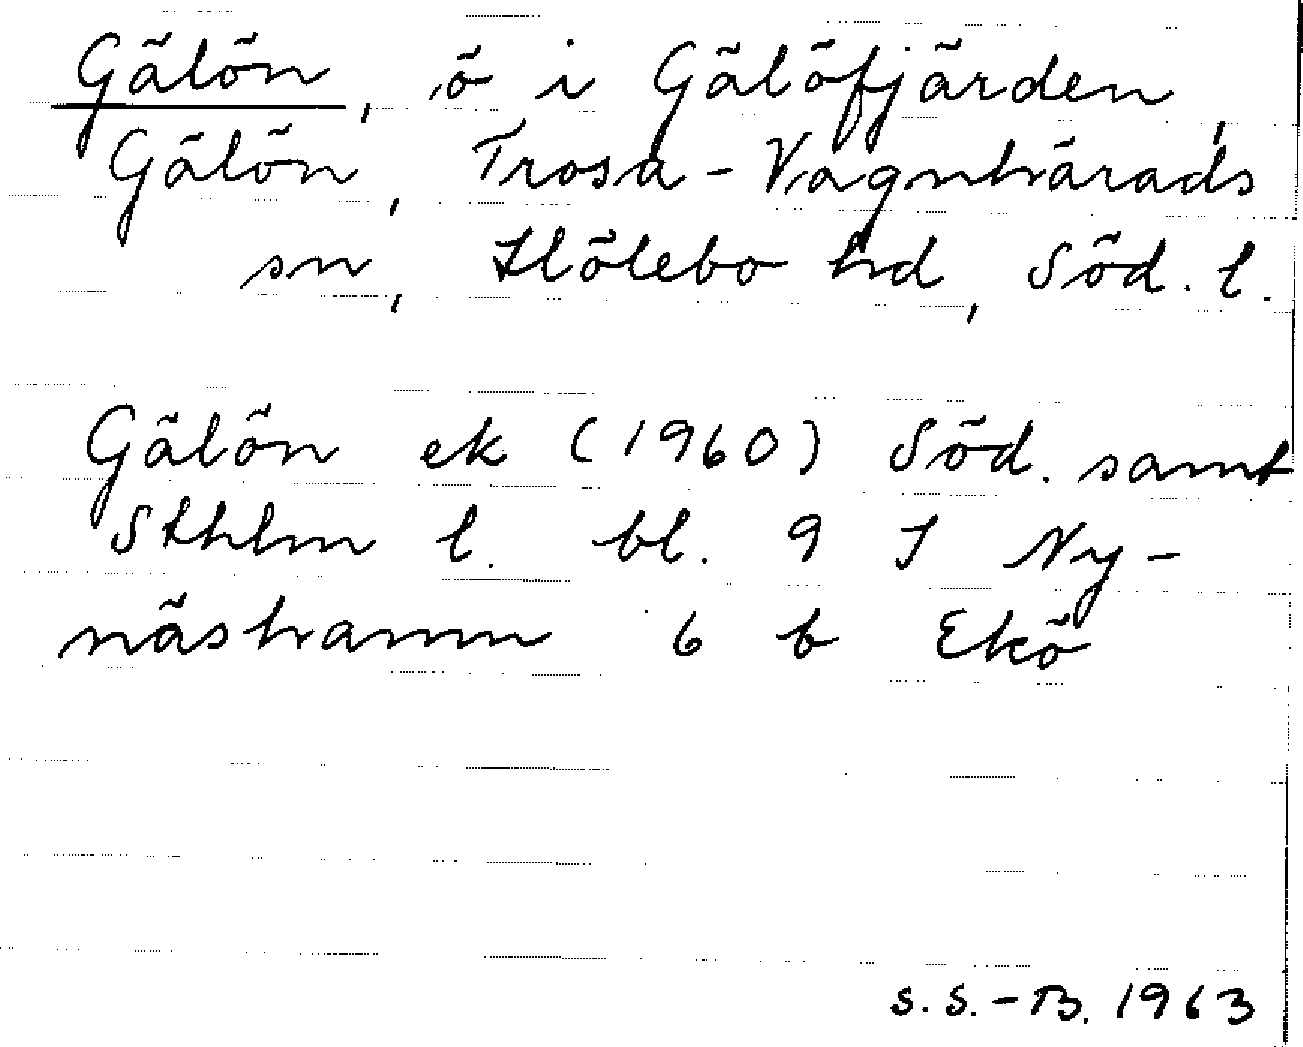 Gälön, ö i Gälöfjärden,
Gälön, Trosa-Vagnhärads
sn, Hölebo hd, Söd. l.
Gälön ek (1960) Söd. samt
Sthlm l. bl. 9 I Ny-
näshamn 6 b Ekö
S.S.-B. 1963